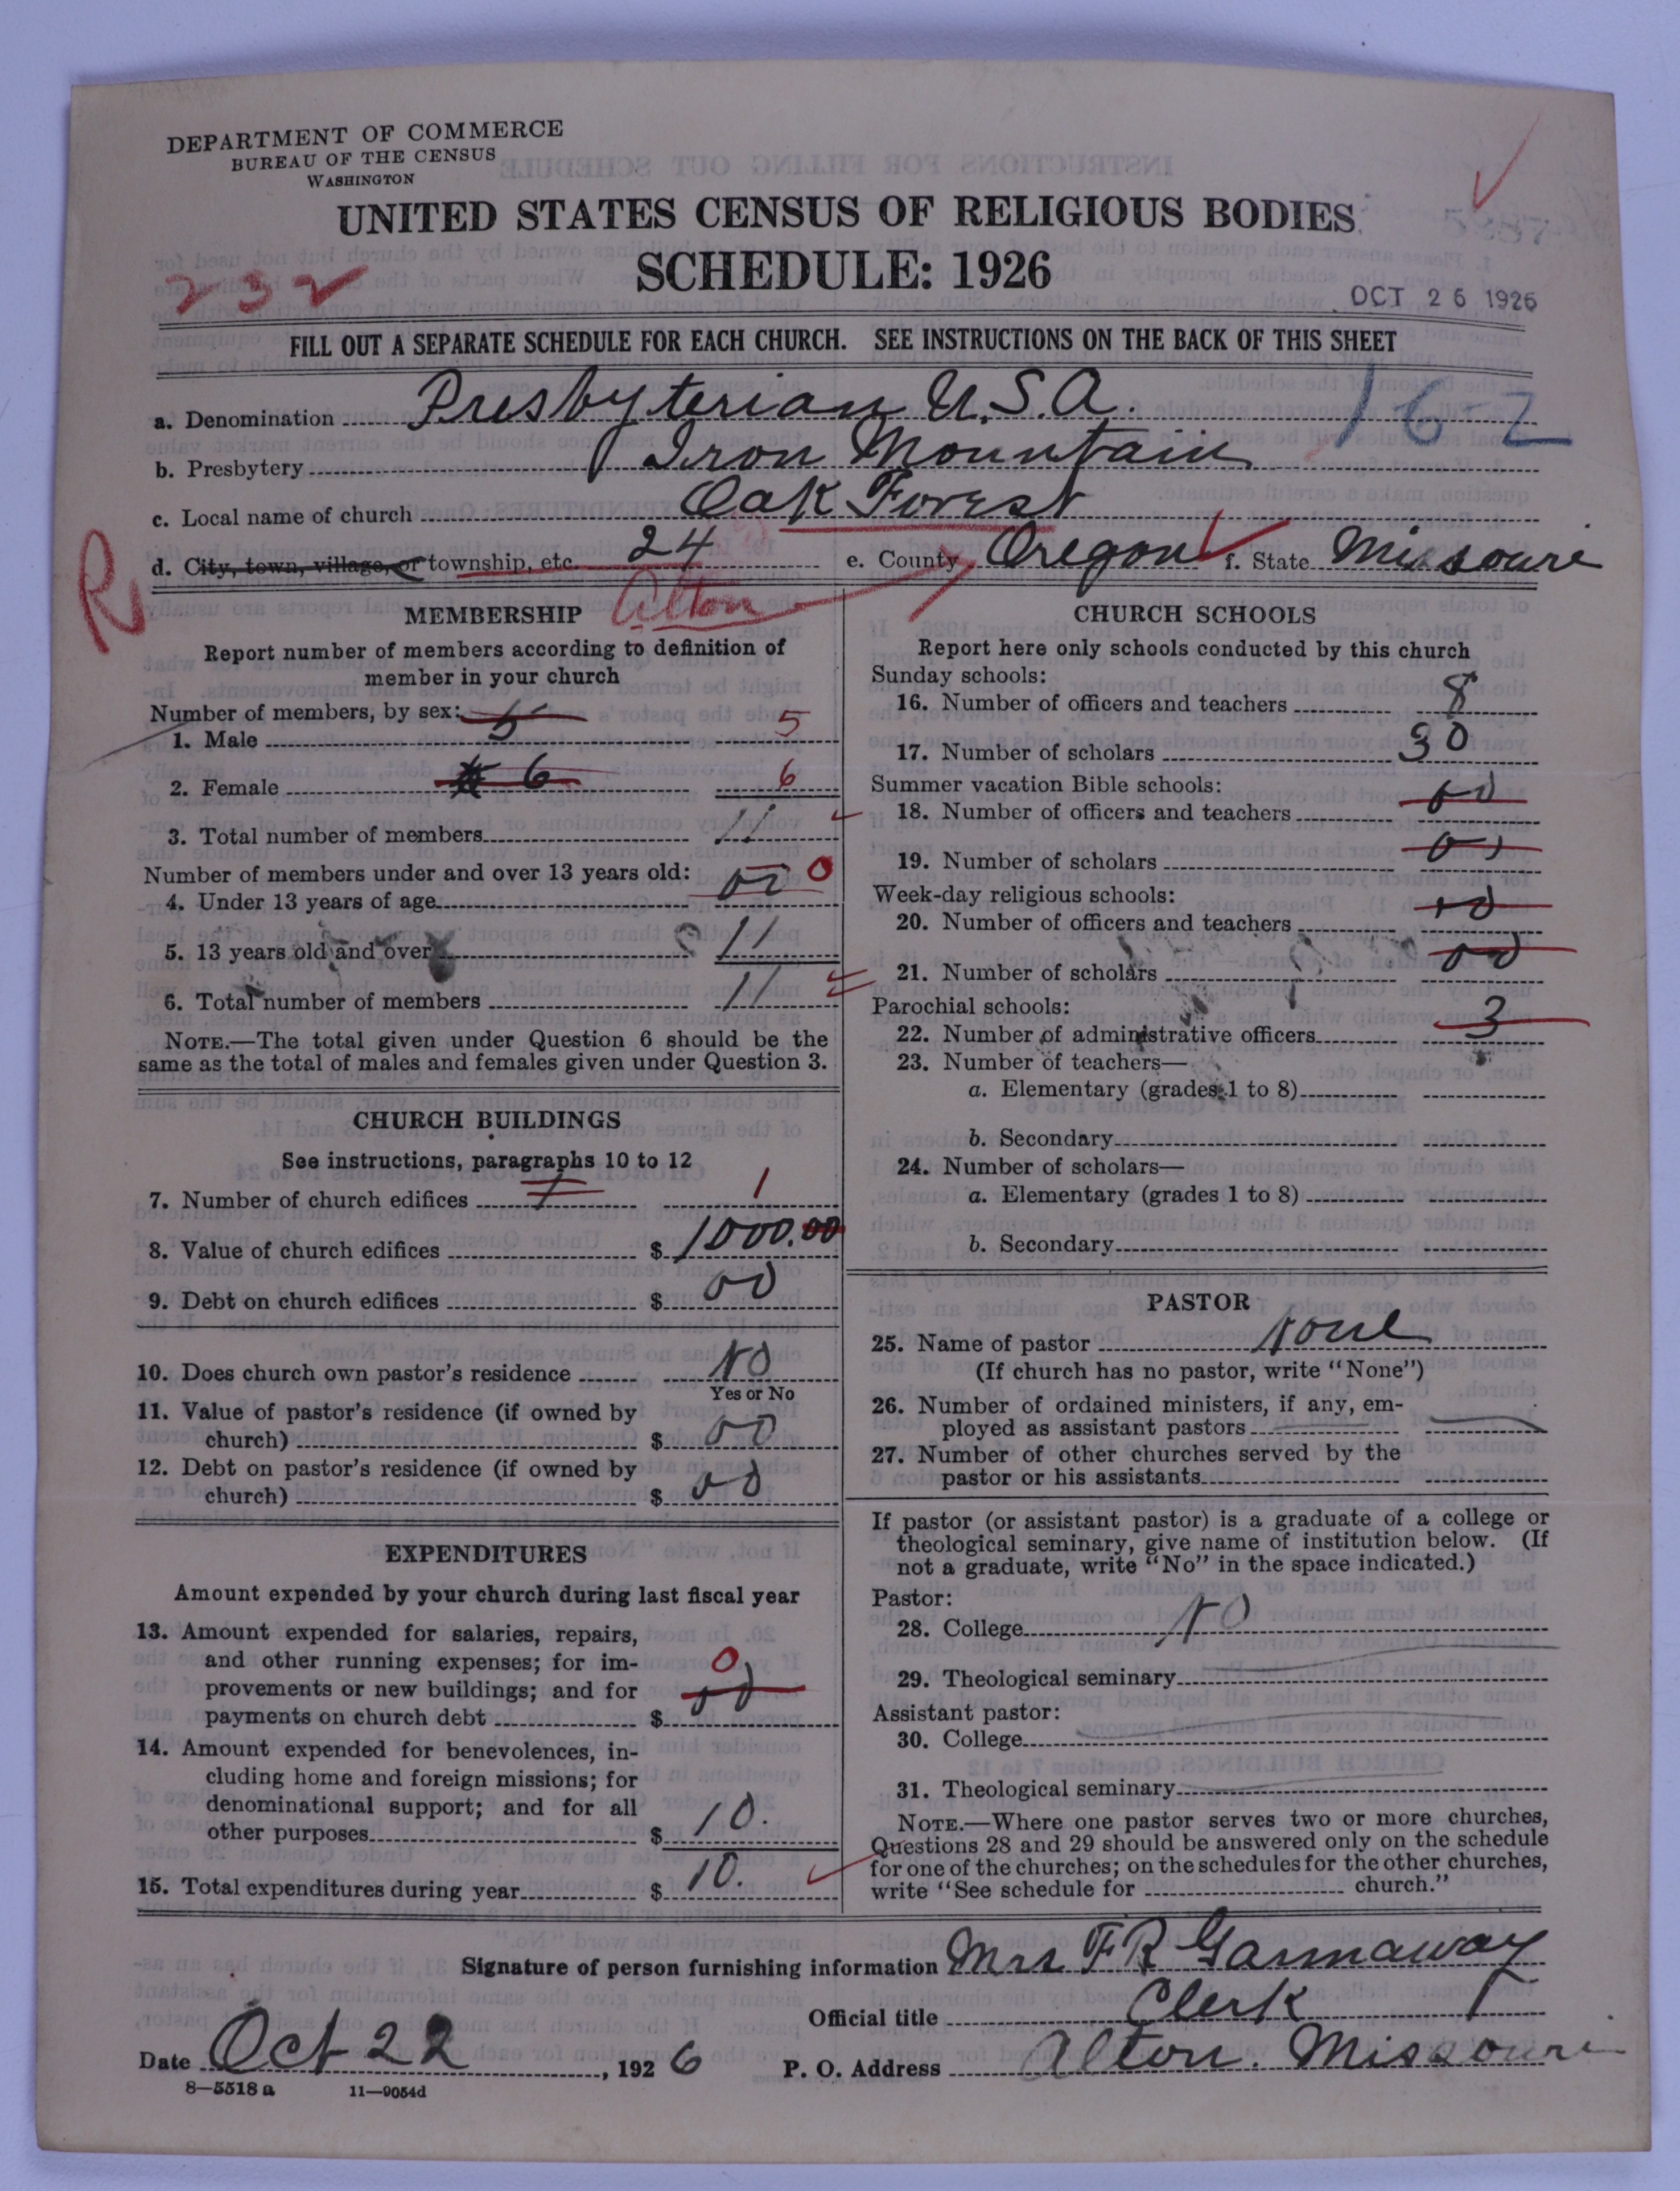 DEPARTMENT OF COMMERCE
BUREAU OF THE CENSUS
WASHINGTON
UNITED STATES CENSUS OF RELIGIOUS BODIES
SCHEDULE: 1926
232
OCT 26 1926
FILL OUT A SEPARATE SCHEDULE FOR EACH CHURCH. SEE INSTRUCTIONS ON THE BACK OF THIS SHEET
a. Denomination Presbyterian U.S.A. 162
b. Presbytery Iron Mountain
c. Local name of church Oak Forest
d. City, town, village, or township, etc. 24 e. County Oregon f. State Missouri
R
Alton
MEMBERSHIP
Report number of members according to definition of
member in your church
Number of members, by sex:
1. Male 5 5
2. Female 6 6
3. Total number of members 11
Number of members under and over 13 years old:
4. Under 13 years of age 00 0
5. 13 years old and over 11
6. Total number of members 11
NOTE.—The total given under Question 6 should be the
same as the total of males and females given under Question 3.
CHURCH BUILDINGS
See instructions, paragraphs 10 to 12
7. Number of church edifices 1 1
8. Value of church edifices $ 1000.00
9. Debt on church edifices $ 00
10. Does church own pastor's residence No
Yes or No
11. Value of pastor's residence (if owned by
church) $ 00
12. Debt on pastor's residence (if owned by
church) $ 00
EXPENDITURES
Amount expended by your church during last fiscal year
13. Amount expended for salaries, repairs,
and other running expenses; for im-
provements or new buildings; and for 0
payments on church debt $ 00
14. Amount expended for benevolences, in-
cluding home and foreign missions; for
denominational support; and for all
other purposes $ 10.
15. Total expenditures during year $ 10.
CHURCH SCHOOLS
Report here only schools conducted by this church
Sunday schools:
16. Number of officers and teachers 8
17. Number of scholars 30
Summer vacation Bible schools:
18. Number of officers and teachers 00
19. Number of scholars 00
Week-day religious schools:
20. Number of officers and teachers 00
21. Number of scholars 00
Parochial schools:
22. Number of administrative officers 3
23. Number of teachers—
a. Elementary (grades 1 to 8)
b. Secondary
24. Number of scholars—
a. Elementary (grades 1 to 8)
b. Secondary
PASTOR
25. Name of pastor None
(If church has no pastor, write "None")
26. Number of ordained ministers, if any, em-
ployed as assistant pastors
27. Number of other churches served by the
pastor or his assistants
If pastor (or assistant pastor) is a graduate of a college or
theological seminary, give name of institution below. (If
not a graduate, write "No" in the space indicated.)
Pastor:
28. College No
29. Theological seminary
Assistant pastor:
30. College
31. Theological seminary
NOTE.—Where one pastor serves two or more churches,
Questions 28 and 29 should be answered only on the schedule
for one of the churches; on the schedules for the other churches,
write "See schedule for church."
Signature of person furnishing information Mrs F R Gannaway
Official title Clerk
Date Oct 22, 1926 P. O. Address Alton. Missouri
8—5518 a 11—9054d